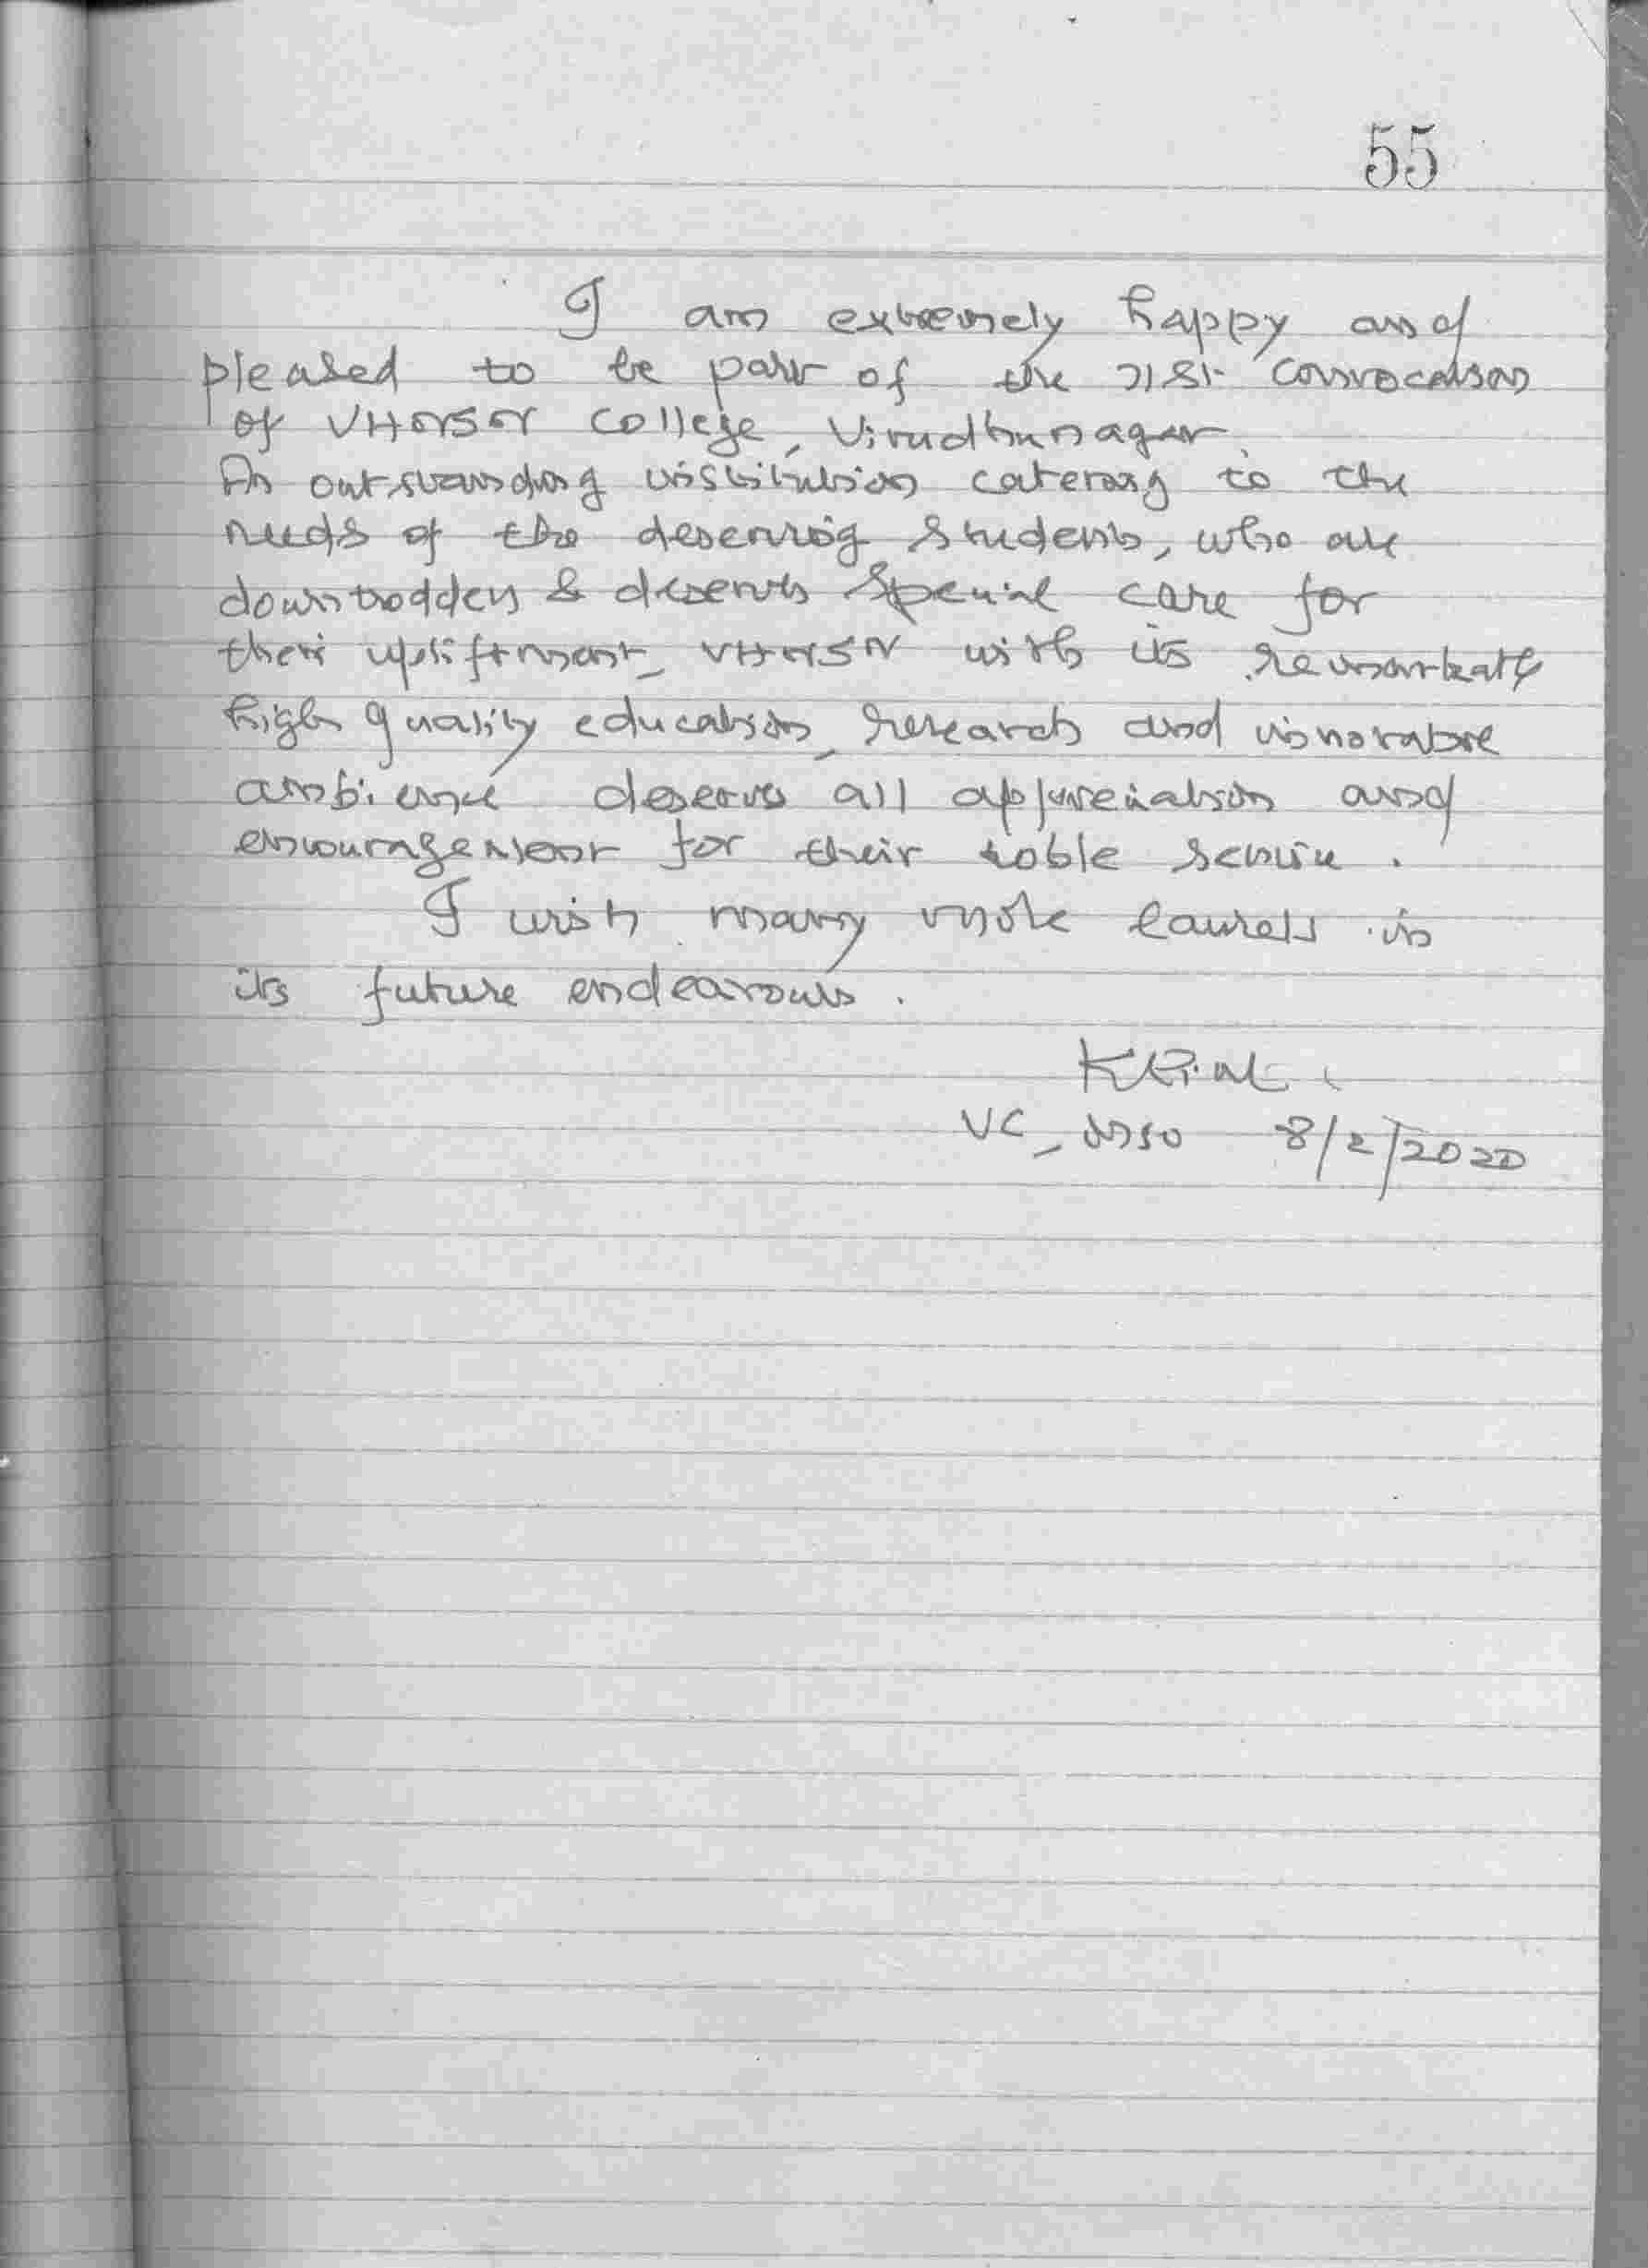 55
I am extremely happy and
pleased to be part of the 71st convocation
of VHNSN College, Virudhunagar.
An outstanding institution catering to the
needs of the deserving students, who are
downtrodden & deserves special care for
their upliftment, VHNSN with its remarkable
high quality education, research and innovative
ambience deserves all appreciation and
encouragement for their noble service.
I wish many more laurels in
its future endeavours.
VC, 8/2/2020